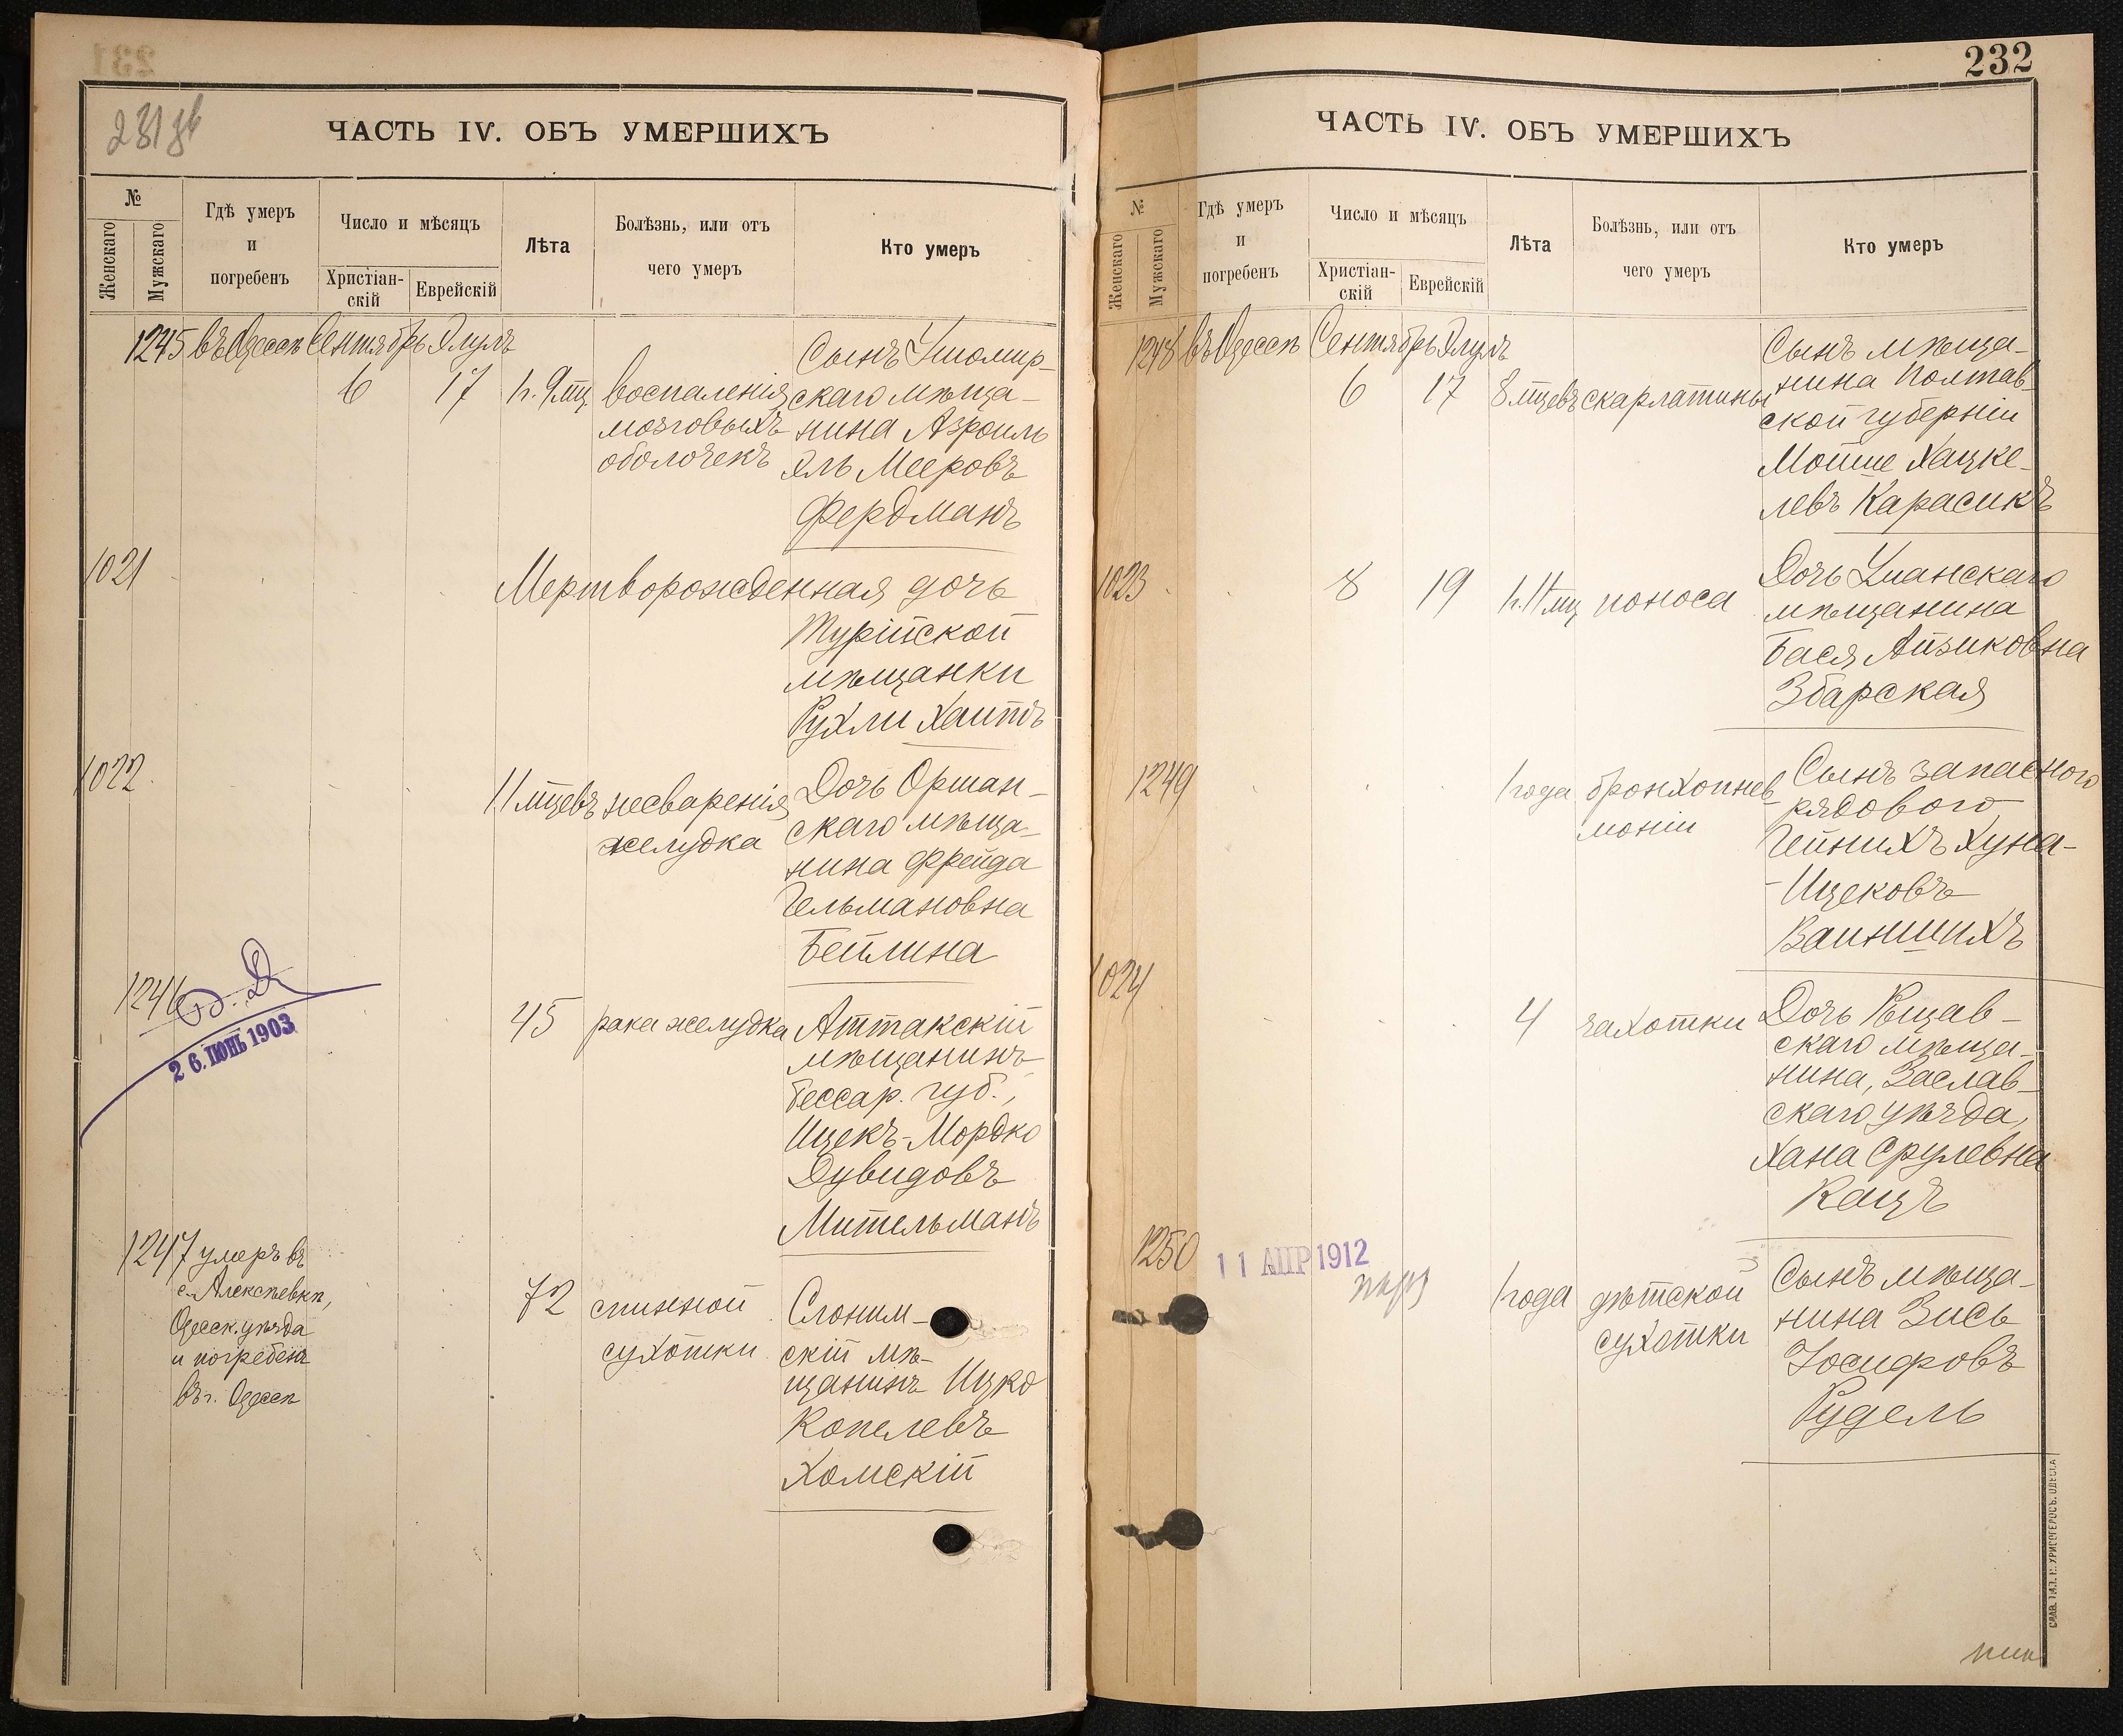 231 об
ЧАСТЬ IV. ОБЪ УМЕРШИХЪ
№
Женскаго
Мужскаго
Гдѣ умеръ
и
погребенъ
Число и мѣсяцъ
Христіан-
скій
Еврейскій
Лѣта
Болѣзнь, или отъ
чего умеръ
Кто умеръ
1245 въ Одессѣ Сентябрь Элулъ
6 17 1 г. 9 мц воспаленія
мозговыхъ
оболочекъ
Сынъ Ушомир-
скаго мѣща-
нина Азроиль
Эль Мееровъ
Фердманъ
1021
Мертворожденная дочь
Турійской
мѣщанки
Рухли Хаитъ
1022
11 мцевъ несваренія
желудка
Дочь Оршан-
скаго мѣща-
нина Фрейда
Гельмановна
Бейлина
1246
26. ІЮНЬ 1903
45 рака желудка
Аттакскій
мѣщанинъ
Бессар. губ.,
Ицекъ-Мордко
Дувидовъ
Мительманъ
1247 умеръ въ
с. Алексѣевкѣ,
Одесск. уѣзда
и погребенъ
въ г. Одессѣ
72 спинной
сухотки
Слоним-
скій мѣ-
щанинъ Ицко
Копелевъ
Хомскій
232
ЧАСТЬ IV. ОБЪ УМЕРШИХЪ
№
Женскаго
Мужскаго
Гдѣ умеръ
и
погребенъ
Число и мѣсяцъ
Христіан-
скій
Еврейскій
Лѣта
Болѣзнь, или отъ
чего умеръ
Кто умеръ
1248 въ Одессѣ Сентябрь Элулъ
6 17 8 мцевъ скарлатины
Сынъ мѣща-
нина Полтав-
ской губерніи
Мойше Хацке-
левъ Карасикъ
1023
8 19 1 г. 11 мц поноса
Дочь Уманскаго
мѣщанина
Бася Айзиковна
Збарская
1249
1 года бронхопнев-
моніи
Сынъ запасного
рядового
Гейнихъ Хуна-
-Ицековъ
Ваиншихъ
1024
4 чахотки
Дочь
скаго мѣща-
нина, Заслав-
скаго уѣзда,
Хана Срулевна
Кацъ
1250
11 АПР 1912
1 года дѣтской
сухотки
Сынъ мѣща-
нина Зись
Іосифовъ
Рудель
СЛАВ. ТИП. Н. ХРИСОГЕЛОСЪ. ОДЕССА